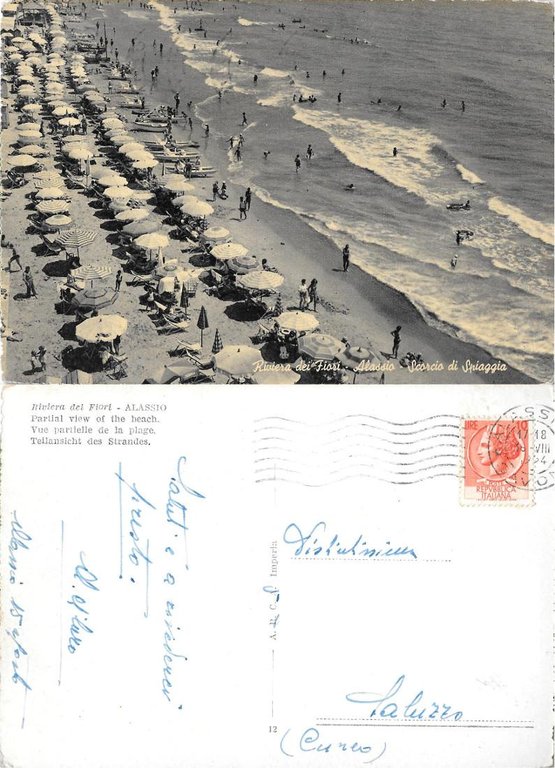 Riviera dei Fiori - Alassio - Scorcio di Spiaggia
Riviera dei Fiori - ALASSIO
Partial view of the beach.
Vue partielle de la plage.
Teilansicht des Strandes.
Saluti e a rivederci
presto.
Alassio 15 agosto
A. R. C. Imperia
12
LIRE 10
POSTE
REPVBBLICA
ITALIANA
ALASSIO
17-18
VIII
Saluzzo
(Cuneo)